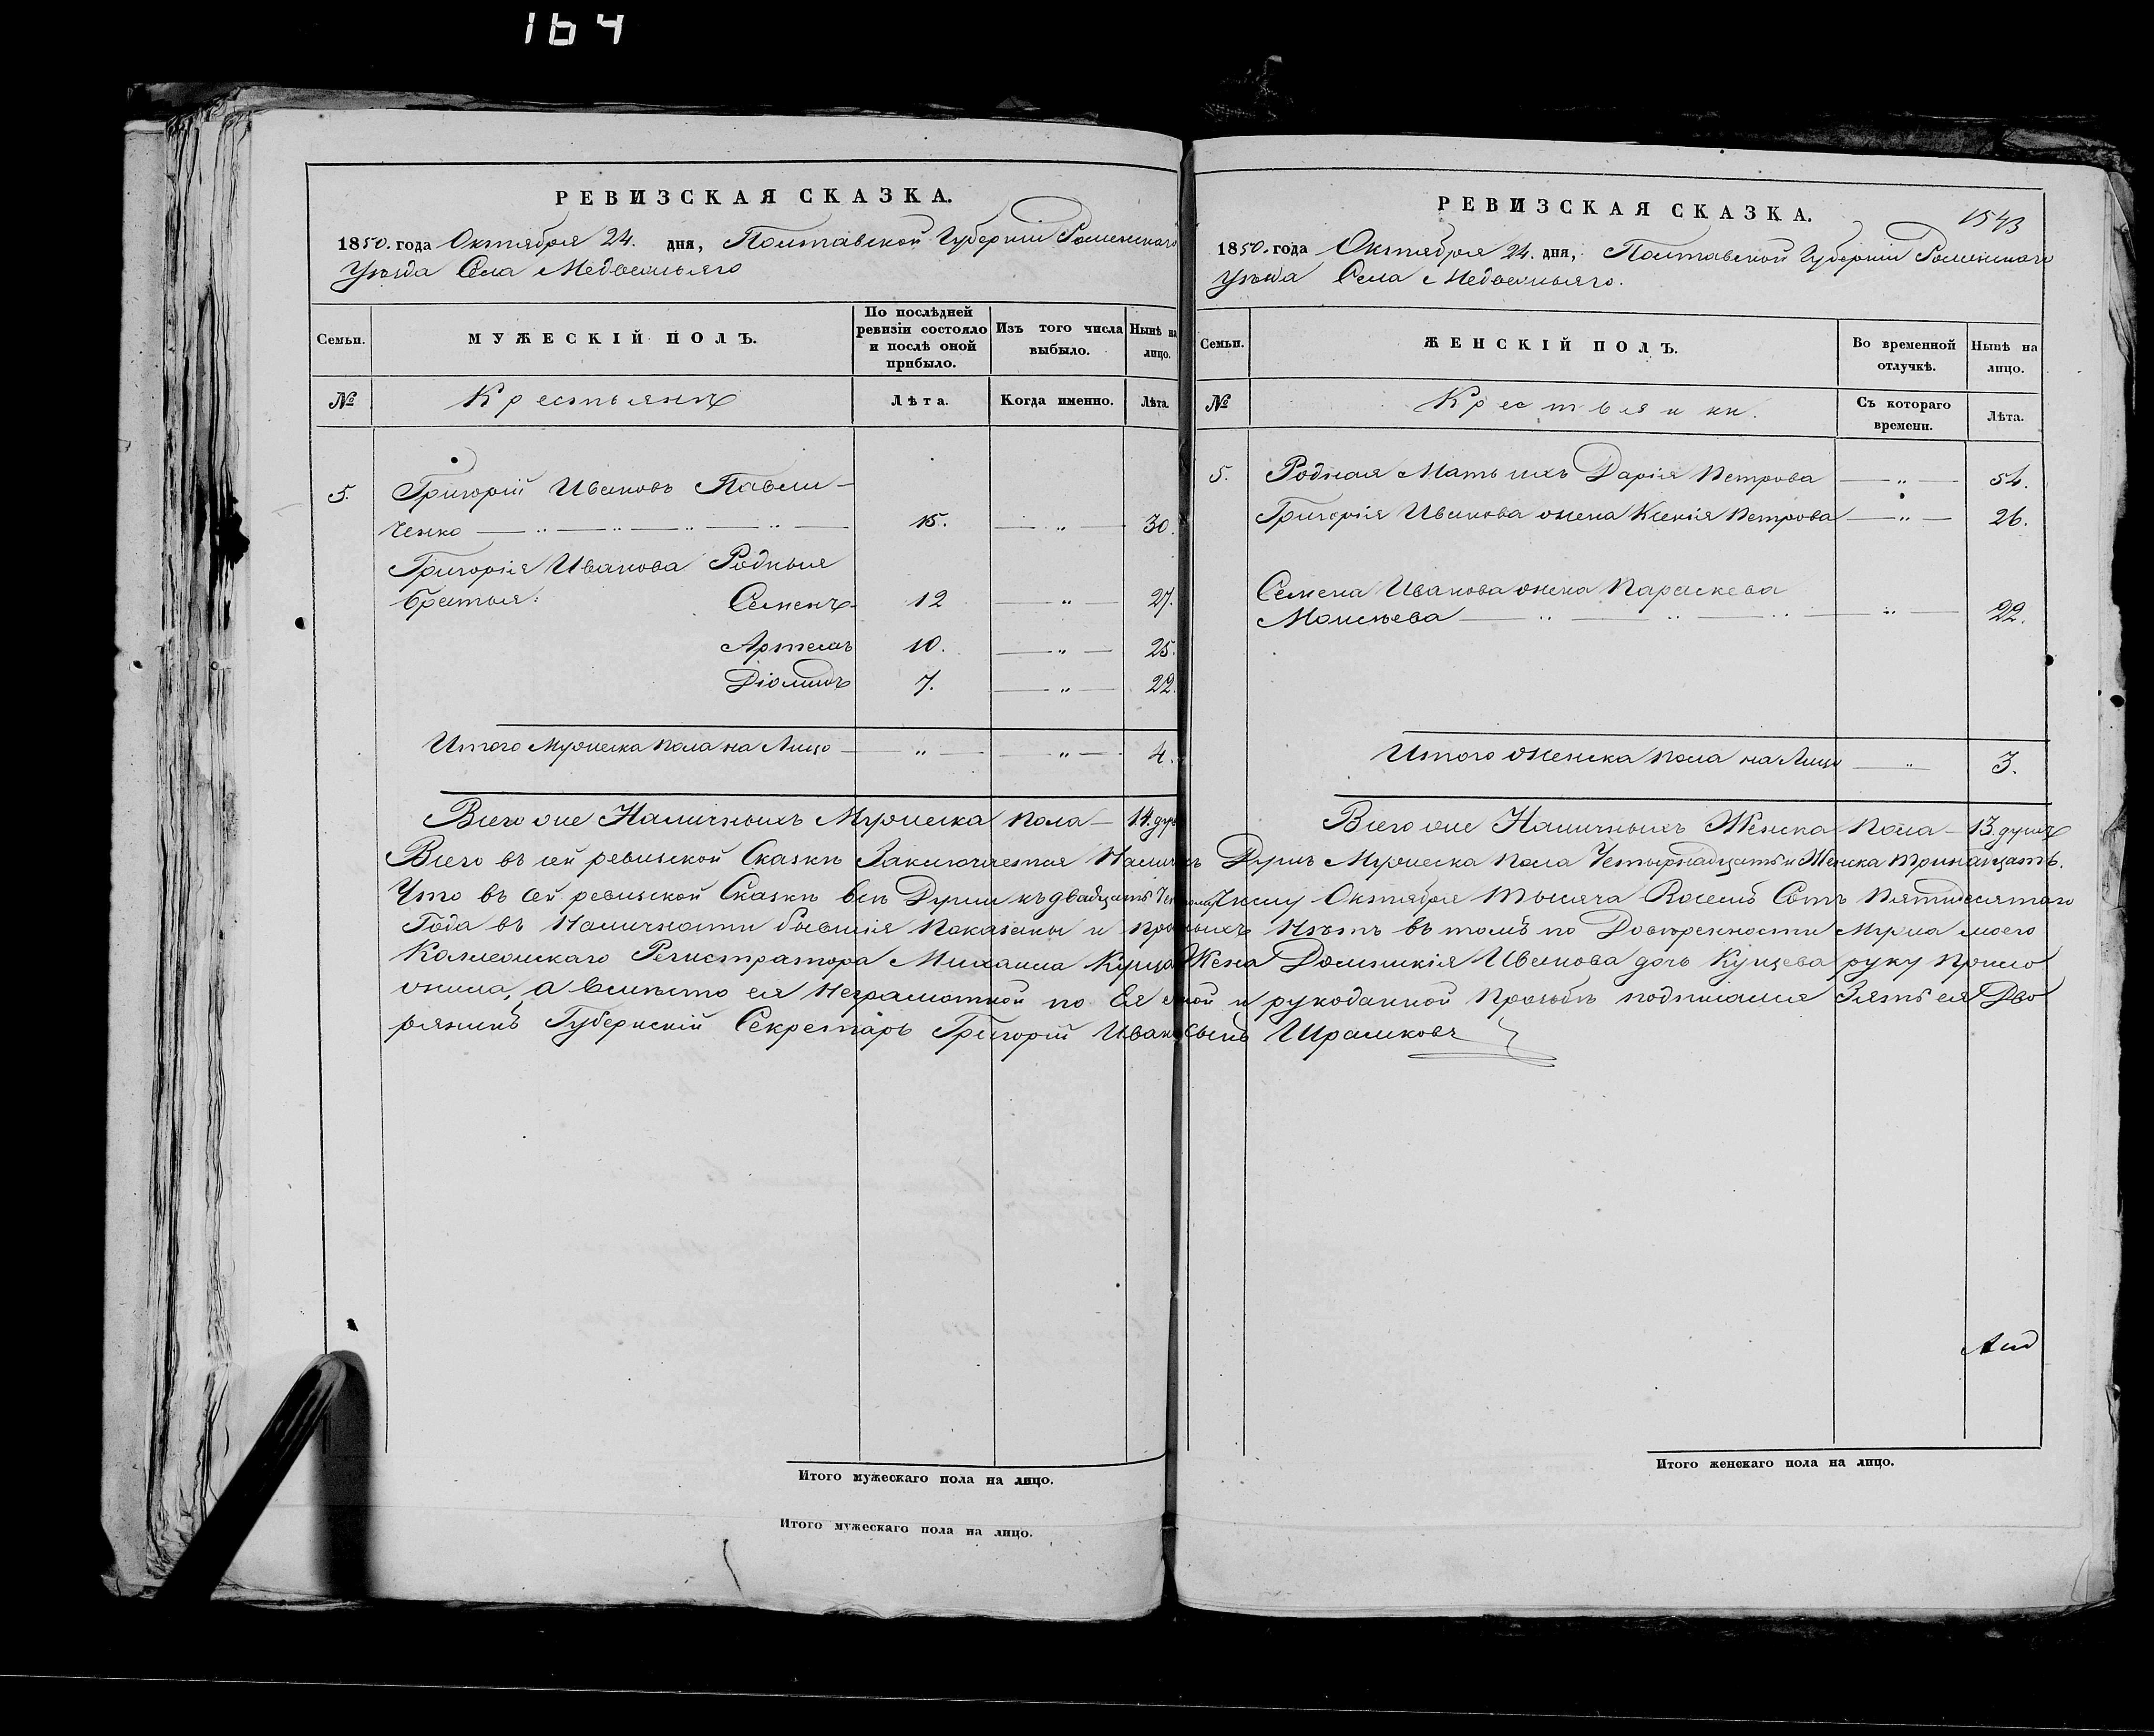 164
РЕВИЗСКАЯ СКАЗКА.
1850. года Октября 24. дня, Полтавской Губерніи Роменскаго
Уѣзда Села Медвежьяго
Семьи.
МУЖЕСКІЙ ПОЛЪ.
По послѣдней ревизіи состояло и послѣ оной прибыло.
Изъ того числа выбыло.
Нынѣ на лицо.
№
Крестьянъ
Лѣта.
Когда именно.
Лѣта.
5. Григорій Ивановъ Павли-
ченко — 15. — „ — 30.
Григорія Иванова Родныя
братья: Семенъ 12 — „ — 27.
Артемъ 10. — „ — 25.
Діомидъ 7. — „ — 22.
Итого Мужеска пола на Лицо — „ — „ — 4.
Всего же Наличныхъ Мужеска пола — 14. душ
РЕВИЗСКАЯ СКАЗКА.
1543
1850. года Октября 24. дня, Полтавской Губерніи Роменскаго
Уѣзда Села Медвежьяго.
Семьи.
ЖЕНСКІЙ ПОЛЪ.
Во временной отлучкѣ.
Нынѣ на лицо.
№
Крестьянки.
Съ котораго времени.
Лѣта.
5. Родная Мать ихъ Дарія Петрова — „ — 54.
Григорія Иванова жена Ксенія Петрова — „ — 26.
Семена Иванова жена Параскева
Моисѣева — „ — 22.
Итого женска пола на Лицо — „ — 3.
Всего же Наличныхъ Женска пола — 13. душъ
Всего въ сей ревизской Сказкѣ Заключается Душъ Мужеска пола Четырнадцать и Женска тринацать.
Что въ сей ревизской Сказкѣ всѣ Души къ двадцать Октября тысяча Восемь Сотъ Пятидесятаго
Года въ Наличности бывшія показаны и Нѣтъ въ томъ по Довѣренности Мужа моего
Колежскаго Регистратора Михаила Купца Жена Домникія Иванова дочь Купцева руку прило
жила, а вмѣсто ея Неграмотной по Ея и рукоданной прозьбѣ подписался Зять ея Дво
рянинъ Губернскій Секретарь Григорій Ивановъ Сынъ
Итого мужескаго пола на лицо.
Итого мужескаго пола на лицо.
Итого женскаго пола на лицо.